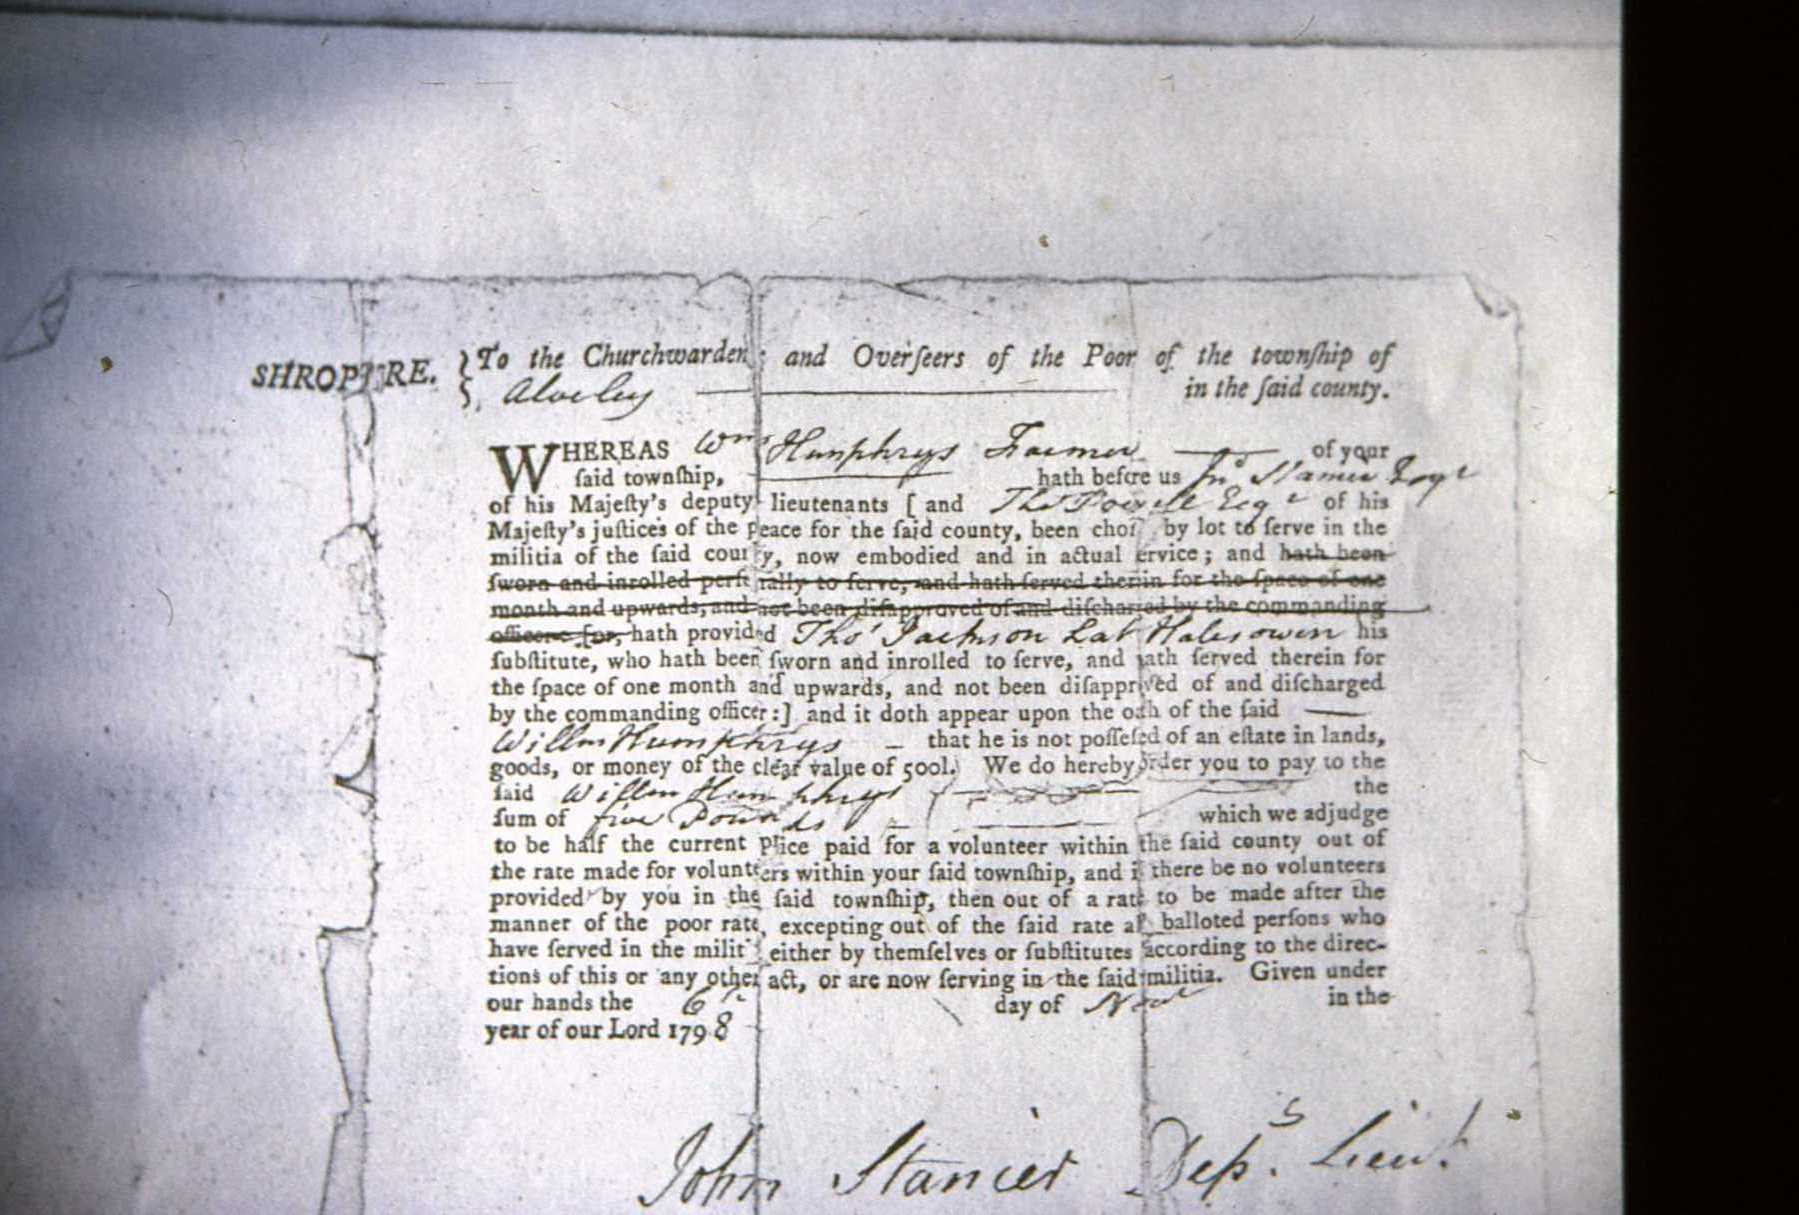 SHROPSHIRE. } To the Churchwardens and Overſeers of the Poor of the townſhip of
Alveley in the ſaid county.
WHEREAS Wm Humphrys Farmer of your
ſaid townſhip, hath before us Jno Stanier Esqr
of his Majeſty's deputy lieutenants [ and Thos Powell Esqr of his
Majeſty's juſtices of the peace for the ſaid county, been choſ by lot to ſerve in the
militia of the ſaid county, now embodied and in actual ſervice; and hath been
ſworn and inrolled perſonally to ſerve, and hath ſerved therein for the ſpace of one
month and upwards, and not been diſapproved of and diſcharged by the commanding
officer: [or, hath provided Thos Jackson Lab Halesowen his
ſubſtitute, who hath been ſworn and inrolled to ſerve, and hath ſerved therein for
the ſpace of one month and upwards, and not been diſapproved of and diſcharged
by the commanding officer:] and it doth appear upon the oath of the ſaid
Willm Humphrys that he is not poſſeſed of an eſtate in lands,
goods, or money of the clear value of 500l. We do hereby order you to pay to the
ſaid Willm Humphrys the
ſum of five Pounds which we adjudge
to be half the current price paid for a volunteer within the ſaid county out of
the rate made for volunteers within your ſaid townſhip, and if there be no volunteers
provided by you in the ſaid townſhip, then out of a rate to be made after the
manner of the poor rate, excepting out of the ſaid rate all balloted perſons who
have ſerved in the militia either by themſelves or ſubſtitutes according to the direc-
tions of this or any other act, or are now ſerving in the ſaid militia. Given under
our hands the 6th day of Novr in the
year of our Lord 1798
John Stanier Depy. Lieut.